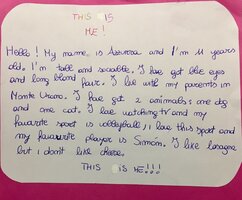 THIS IS
ME!
Hello! My name is Azzurra and I'm 11 years
old. I'm tall and sociable. I have got blue eyes
and long blond hair. I live with my parents in
Monte Urano. I have got 2 animals: one dog
and one cat. I love watching tv and my
favourite sport is volleyball; I love this sport and
my favourite player is Simón. I like lasagne
but i don't like cheese.
THIS IS ME!!!